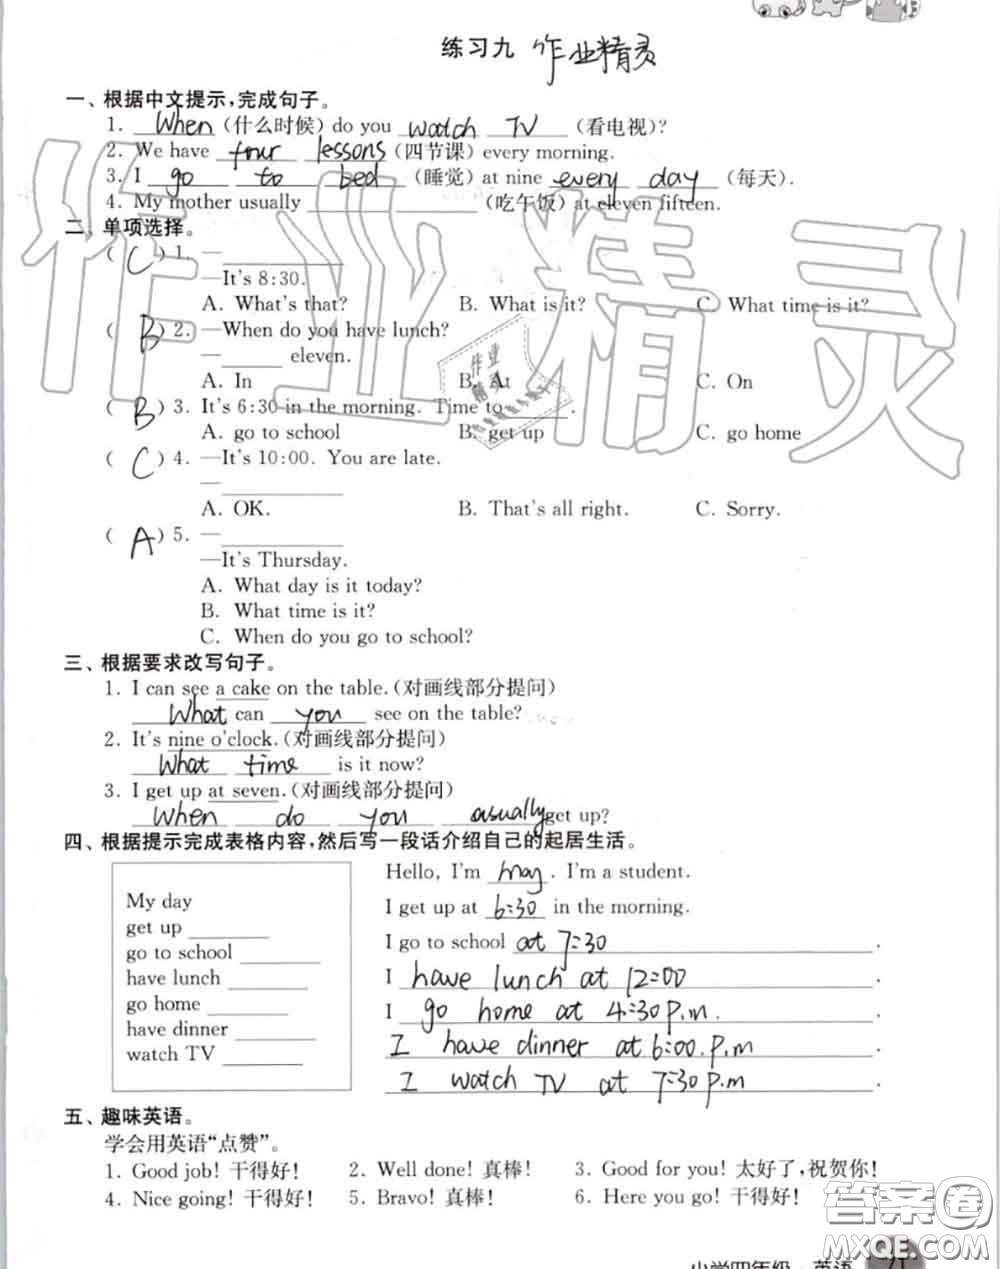 练习九 作业精灵
一、根据中文提示,完成句子。
1. When (什么时候) do you watch TV (看电视)?
2. We have four lessons (四节课) every morning.
3. I go to bed (睡觉) at nine every day (每天).
4. My mother usually ______ ______ (吃午饭) at eleven fifteen.
二、单项选择。
( C ) 1. —______
—It's 8:30.
A. What's that? B. What is it? C. What time is it?
( B ) 2. —When do you have lunch?
—______ eleven.
A. In B. At C. On
( B ) 3. It's 6:30 in the morning. Time to ______.
A. go to school B. get up C. go home
( C ) 4. —It's 10:00. You are late.
—______
A. OK. B. That's all right. C. Sorry.
( A ) 5. —______
—It's Thursday.
A. What day is it today?
B. What time is it?
C. When do you go to school?
三、根据要求改写句子。
1. I can see a cake on the table.(对画线部分提问)
What can you see on the table?
2. It's nine o'clock.(对画线部分提问)
What time is it now?
3. I get up at seven.(对画线部分提问)
When do you usually get up?
四、根据提示完成表格内容,然后写一段话介绍自己的起居生活。
My day
get up ______
go to school ______
have lunch ______
go home ______
have dinner ______
watch TV ______
Hello, I'm may. I'm a student.
I get up at 6:30 in the morning.
I go to school at 7:30.
I have lunch at 12:00.
I go home at 4:30 p.m.
I have dinner at 6:00. p.m
I watch TV at 7:30 p.m
五、趣味英语。
学会用英语“点赞”。
1. Good job! 干得好! 2. Well done! 真棒! 3. Good for you! 太好了,祝贺你!
4. Nice going! 干得好! 5. Bravo! 真棒! 6. Here you go! 干得好!
小学四年级·英语 71
作业精灵
作业精灵
答案圈
MXQE.COM